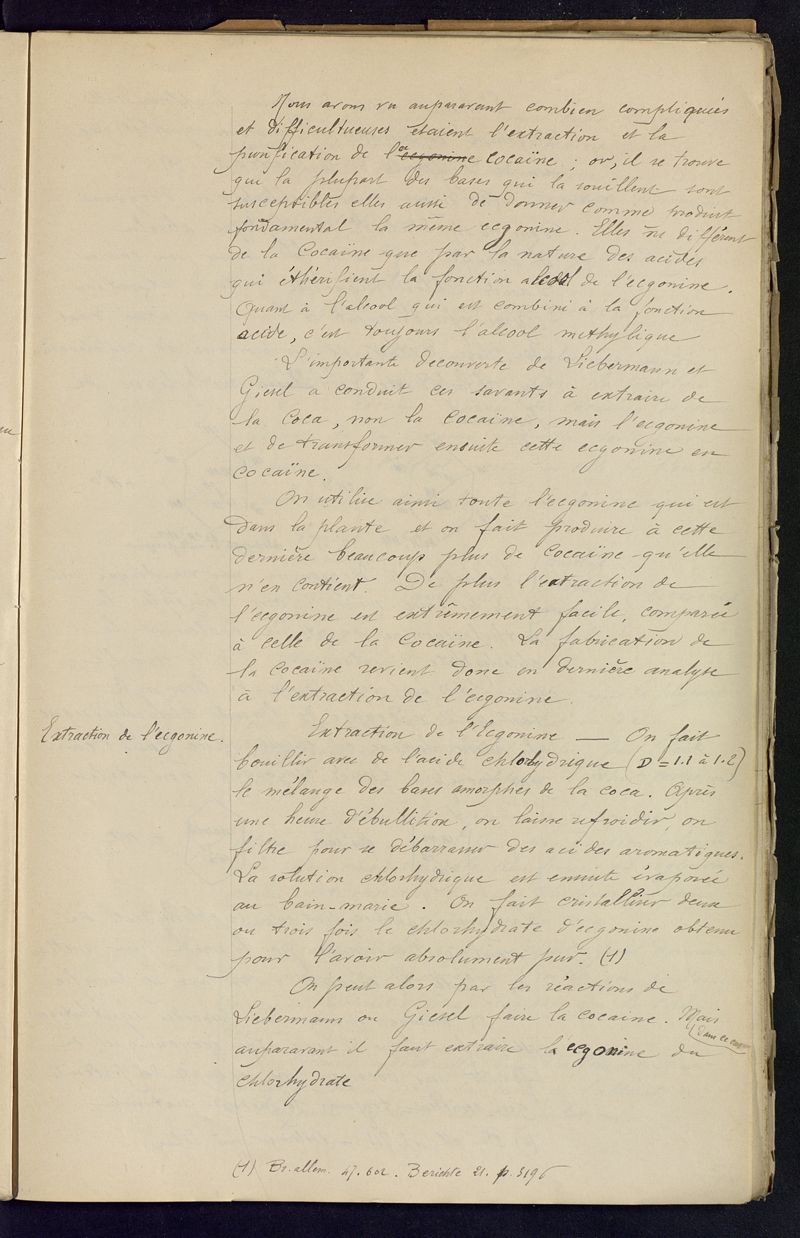 Nous avons vu auparavant combien compliquées
et difficultueuses etaient l'extraction et la
purification de l'ecgonine cocaïne ; or, il se trouve
que la plupart des bases qui la souillent sont
susceptibles elles aussi de donner comme produit
fondamental la même ecgonine. Elles ne diffèrent
de la Cocaïne que par la nature des acides
qui éthérifient la fonction alcool de l'ecgonine.
Quant à l'alcool qui est combiné à la fonction
acide, c'est toujours l'alcool methylique
L'importante decouverte de Liebermann et
Giesel a conduit ces savants à extraire de
la Coca, non la Cocaïne, mais l'ecgonine
et de transformer ensuite cette ecgonine en
cocaïne.
On utilise ainsi toute l'ecgonine qui est
dans la plante et on fait produire à cette
dernière beaucoup plus de Cocaïne qu'elle
n'en contient. De plus l'extraction de
l'ecgonine est extrêmement facile, comparée
à celle de la Cocaïne. La fabrication de
la cocaïne revient donc en dernière analyse
à l'extraction de l'ecgonine.
Extraction de l'ecgonine.
Extraction de l'Ecgonine — On fait
bouillir avec de l'acide chlorhydrique (D = 1.1 à 1.2)
le mélange des bases amorphes de la coca. Après
une heure d'ébullition, on laisse refroidir, on
filtre pour se débarrasser des acides aromatiques.
La solution chlorhydrique est ensuite évaporée
au bain-marie. On fait cristalliser deux
ou trois fois le chlorhydrate d'ecgonine obtenu
pour l'avoir absolument pur. (1)
On peut alors par les réactions de
Liebermann ou Giesel faire la cocaine. Mais
dans ce cas
auparavant il faut extraire la ecgonine du
chlorhydrate
(1) Br. allem. 47.602. Berichte 21. p. 3196